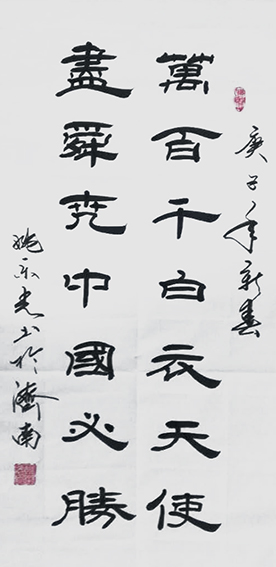 庚子年新春
萬百千白衣天使
盡舜尭中國必勝
姚乐光书於濟南